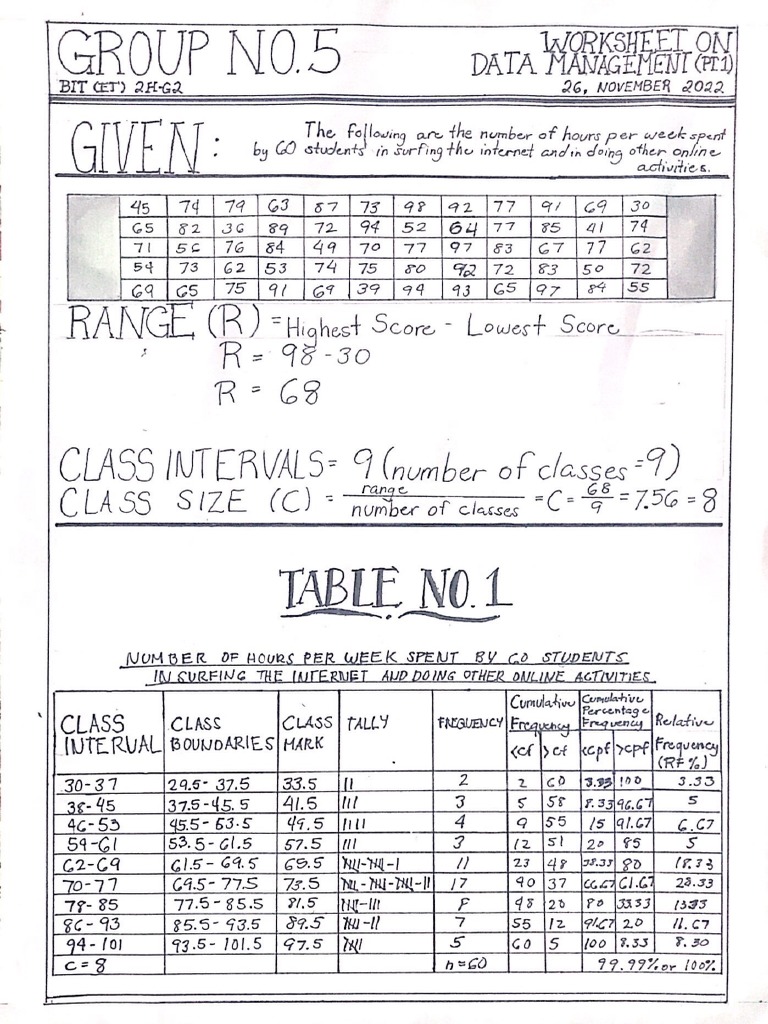 GROUP NO.5
BIT (ET) 2H-G2
WORKSHEET ON
DATA MANAGEMENT (PT1)
26, NOVEMBER 2022
GIVEN:
The following are the number of hours per week spent
by 60 students in surfing the internet and in doing other online
activities.
45 74 79 63 87 73 98 92 77 91 69 30
65 82 36 89 72 94 52 64 77 85 41 74
71 56 76 84 49 70 77 97 83 67 77 62
54 73 62 53 74 75 80 92 72 83 50 72
69 65 75 91 69 39 94 93 65 97 84 55
RANGE (R) = Highest Score - Lowest Score
R = 98-30
R = 68
CLASS INTERVALS= 9 (number of classes=9)
CLASS SIZE (C) = range / number of classes = C = 68/9 = 7.56 = 8
TABLE NO.1
NUMBER OF HOURS PER WEEK SPENT BY 60 STUDENTS
IN SURFING THE INTERNET AND DOING OTHER ONLINE ACTIVITIES
CLASS INTERVAL CLASS BOUNDARIES CLASS MARK TALLY FREQUENCY Cumulative Frequency <cf >cf Cumulative Percentage Frequency <cpf >cpf Relative Frequency (RF%)
30-37 29.5-37.5 33.5 || 2 2 60 3.33 100 3.33
38-45 37.5-45.5 41.5 ||| 3 5 58 8.33 96.67 5
46-53 45.5-53.5 49.5 |||| 4 9 55 15 91.67 6.67
54-61 53.5-61.5 57.5 ||| 3 12 51 20 85 5
62-69 61.5-69.5 65.5 11 23 48 38.33 80 18.33
70-77 69.5-77.5 73.5 17 40 37 66.67 61.67 28.33
78-85 77.5-85.5 81.5 8 48 20 80 33.33 13.33
86-93 85.5-93.5 89.5 7 55 12 91.67 20 11.67
94-101 93.5-101.5 97.5 5 60 5 100 8.33 8.30
C=8 n=60 99.99% or 100%